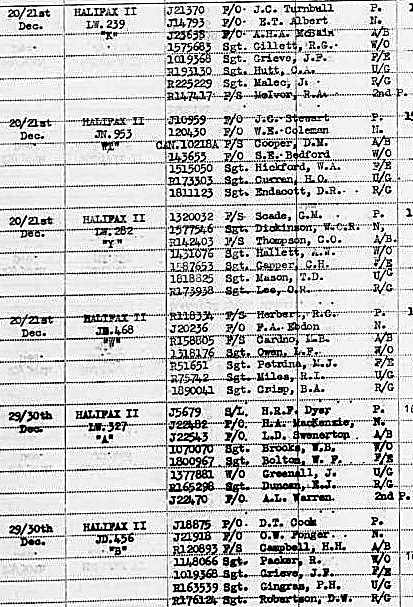 20/21st HALIFAX II J21370 P/O J.C. Turnbull P.
Dec. LW.239 J14793 F/O E.T. Albert N.
"K" J25658 F/O A.H.A. McBain A/B
1575683 Sgt. Gillett, R.G. W/O
1019368 Sgt. Grieve, J.F. F/E
R193130 Sgt. Hutt, C.A. U/G
R225229 Sgt. Malec, J. R/G
R147417 F/S McIvor, R.A. 2nd P.
20/21st HALIFAX II J10959 F/O J.G. Stewart P.
Dec. JN.953 120430 F/O W.E. Coleman N.
CAN.10218A F/S Cooper, D.M. A/B
143655 P/O S.E. Bedford W/O
1515050 Sgt. Hickford, W.A. F/E
R173303 Sgt. Curran, H.O. U/G
1811123 Sgt. Endacott, D.R. R/G
20/21st HALIFAX II 1320032 F/S Soade, G.M. P.
Dec. LW.282 1577546 Sgt. Dickinson, W.C.R. N.
"Y" R142403 F/S Thompson, C.O. A/B.
1431076 Sgt. Hallett, W. W/O
1587653 Sgt. Gapper, C.H. F/E
1818825 Sgt. Mason, T.D. U/G
R173938 Sgt. Lee, O.R. R/G
20/21st HALIFAX II R118334 F/S Herbert, R.G. P.
Dec. .468 J20236 F/O F.A. Ebdon N.
"W" R158805 F/S L.B. A/B
1318176 Sgt. Owen, L.P. W/O
R51651 Sgt. Petrina, M.J. F/E
R75742 Sgt. Miles, R.I. U/G
1890041 Sgt. Crisp, B.A. R/G
29/30th HALIFAX II J5679 S/L. H.R.F. Dyer P.
Dec. LW.327 J22482 F/O. H.A. MacKenzie, N.
"A" J22543 F/O. L.D. Swenerton A/B
1070070 Sgt. Brooks, W.B. W/O
1800967 Sgt. Bolton, W. F. F/E
1377881 W/O Greenall, J. U/G
R165298 Sgt. Duncan, E.J. R/G
J22470 F/O. A.L. Warren. 2nd P.
29/30th HALIFAX II J18875 P/O D.T. Cook P.
Dec. JD.456 J21918 F/O O.W. Ponger N.
"B" R120893 F/S Campbell, H.H. A/B
1148066 Sgt. Packer, R. W/O
1019368 Sgt. Grieve, J.F. F/E
R163539 Sgt. Gingras, P.H. U/G
R176124 Sgt. Robertson, D.W. R/G